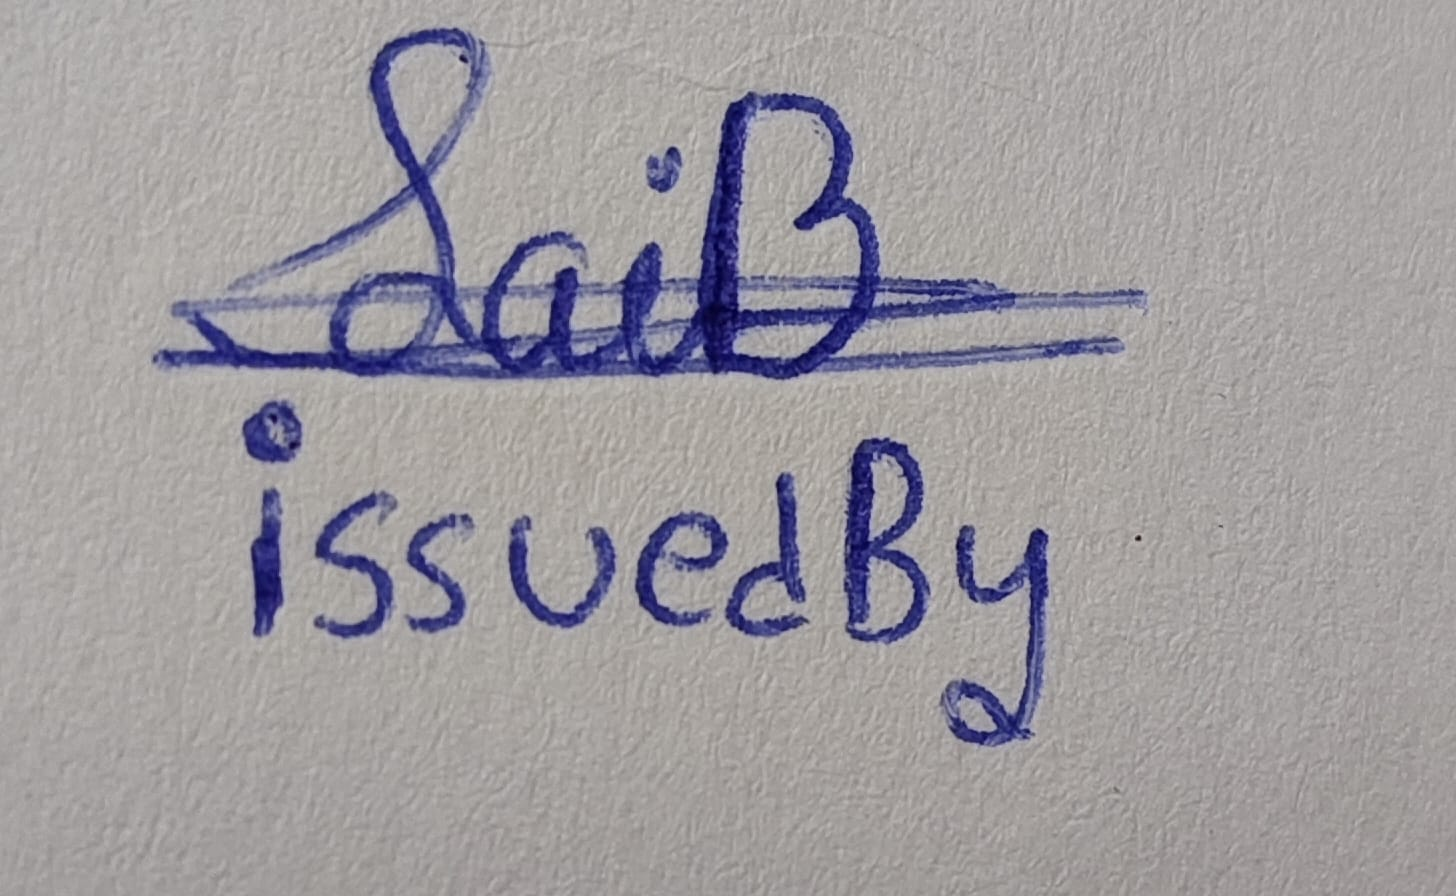 SaiB
issuedBy